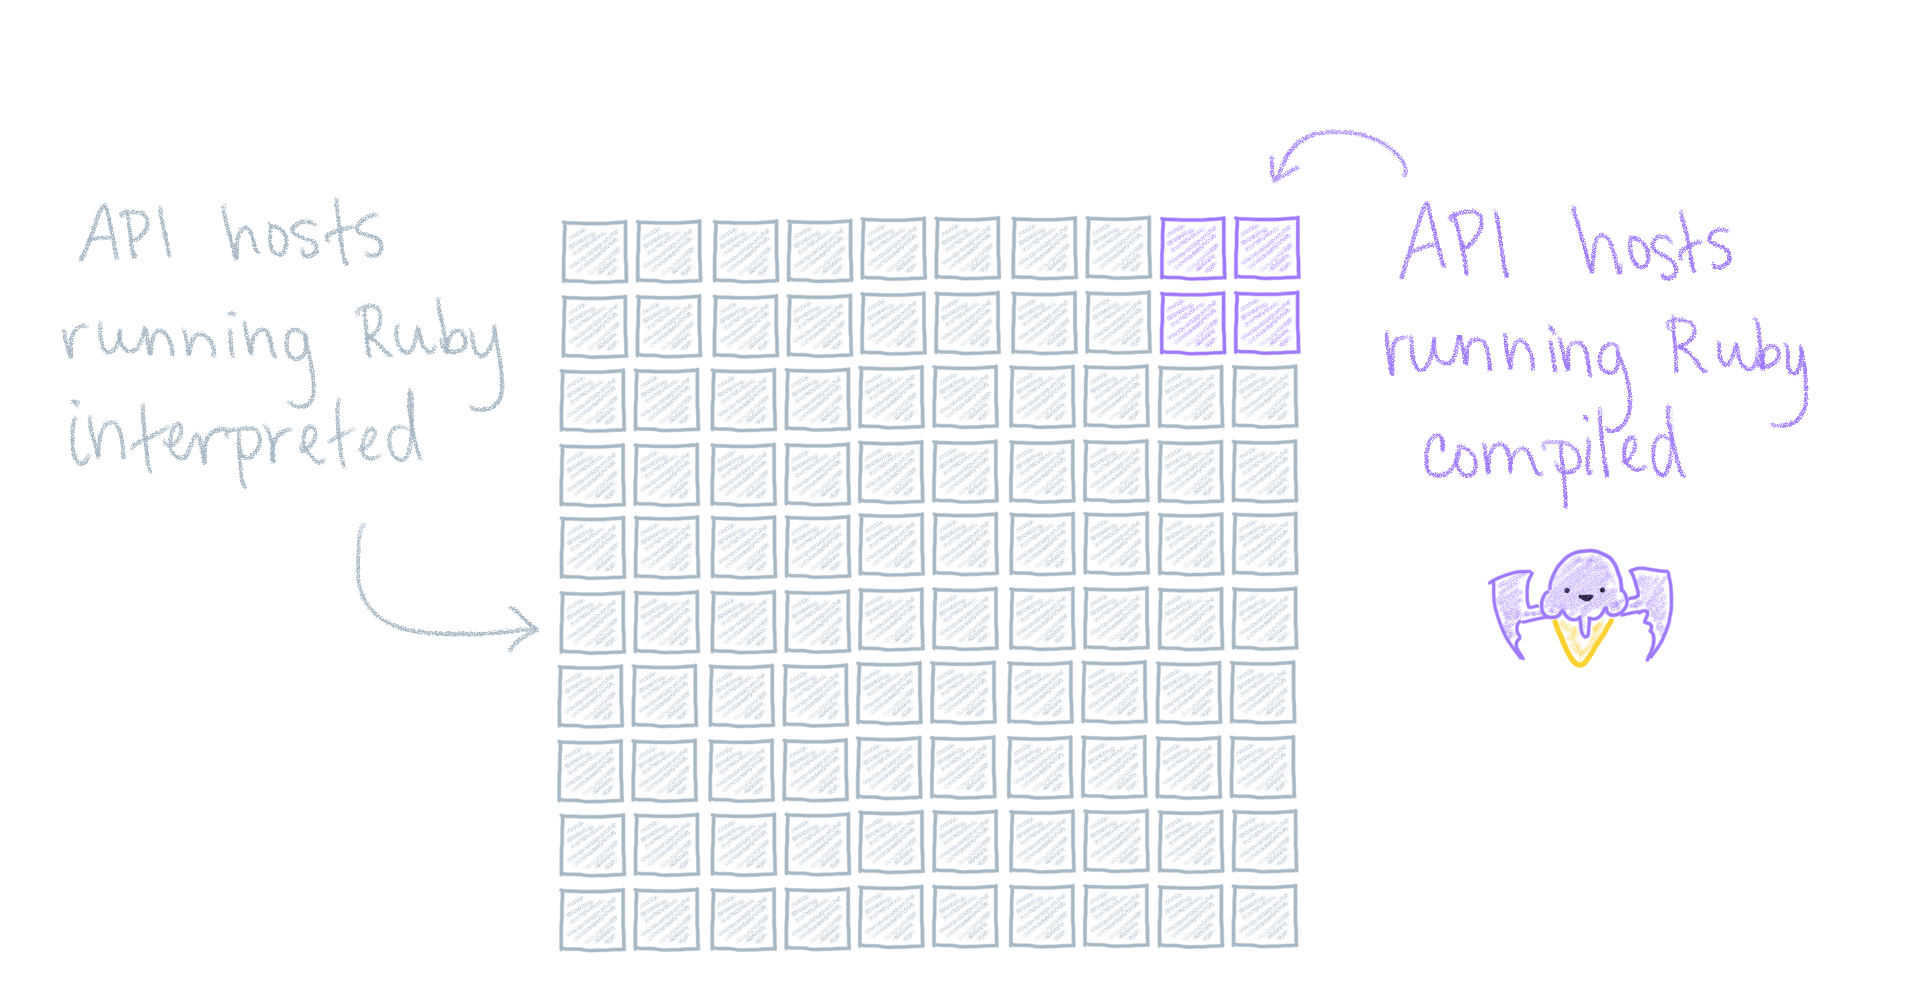 API hosts
running Ruby
interpreted
API hosts
running Ruby
compiled